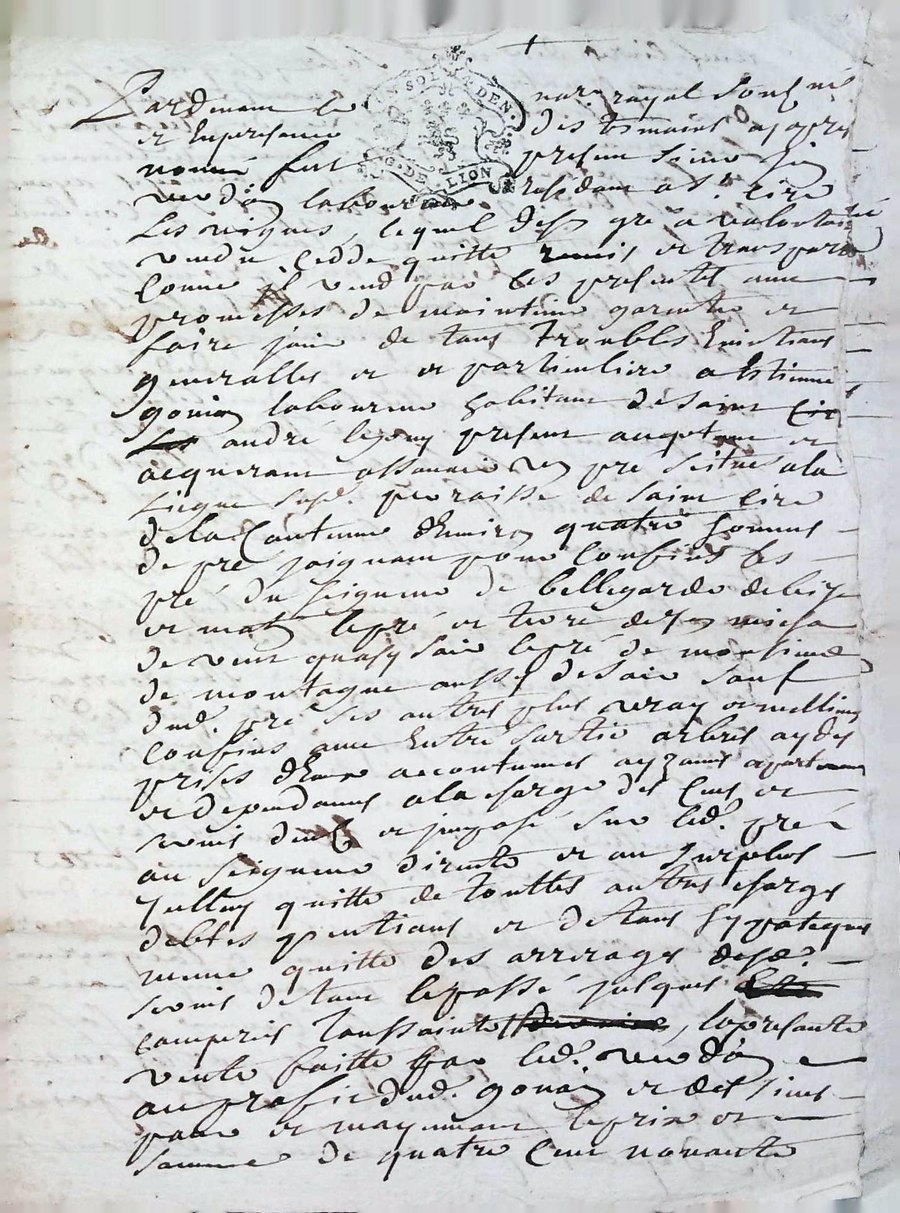 +
UN SOL 4 DEN.
G. DE LION
Pardevant le notr. royal sousné
et en presence des temoins apopres
només fut present sieur
verdan laboureur residant a St. Cire
les vignes, lequel de son gré a volontairement
vendu cedde quitte remis et transporte
comme il vend par ces presentes avec
promesses de maintenir garentir et
faire jouir de tous troubles evictions
generalles et et particuliere a Estienne
gonin laboureur habitant de saint Cir
les andré le jony present acceptant et
acquerant assavoir un pré scitué a la
susd. parroisse de saint Cire
de la Contenue d'environ quatre hommes
de pré joignant pour confins les
pré du seigneur de bellegarde de bize
et matin le pré et terre de
de vent quasy soir le pré de monsieur
de montagne aussy de soir sauf
dud. pré ses autres plus vray et meillieurs
confins avec entre sortie arbres aydes
prises d'eaux accoutumés aysances apartenances
et dependances a la charge des Cens et
servis deub et imposé sur led. pré
au seigneur directe et au surplus
quitte de touttes autres charges
debtes pentions et de tous hypoteques
meme quitte des arrerages desd.
servis de tout le passé jusques
compris Toussaints, la presente
vente faitte par led. verdan
au profit dud. gonin et des siens
pour et moyennant le prix et
somme de quatre Cent nonante